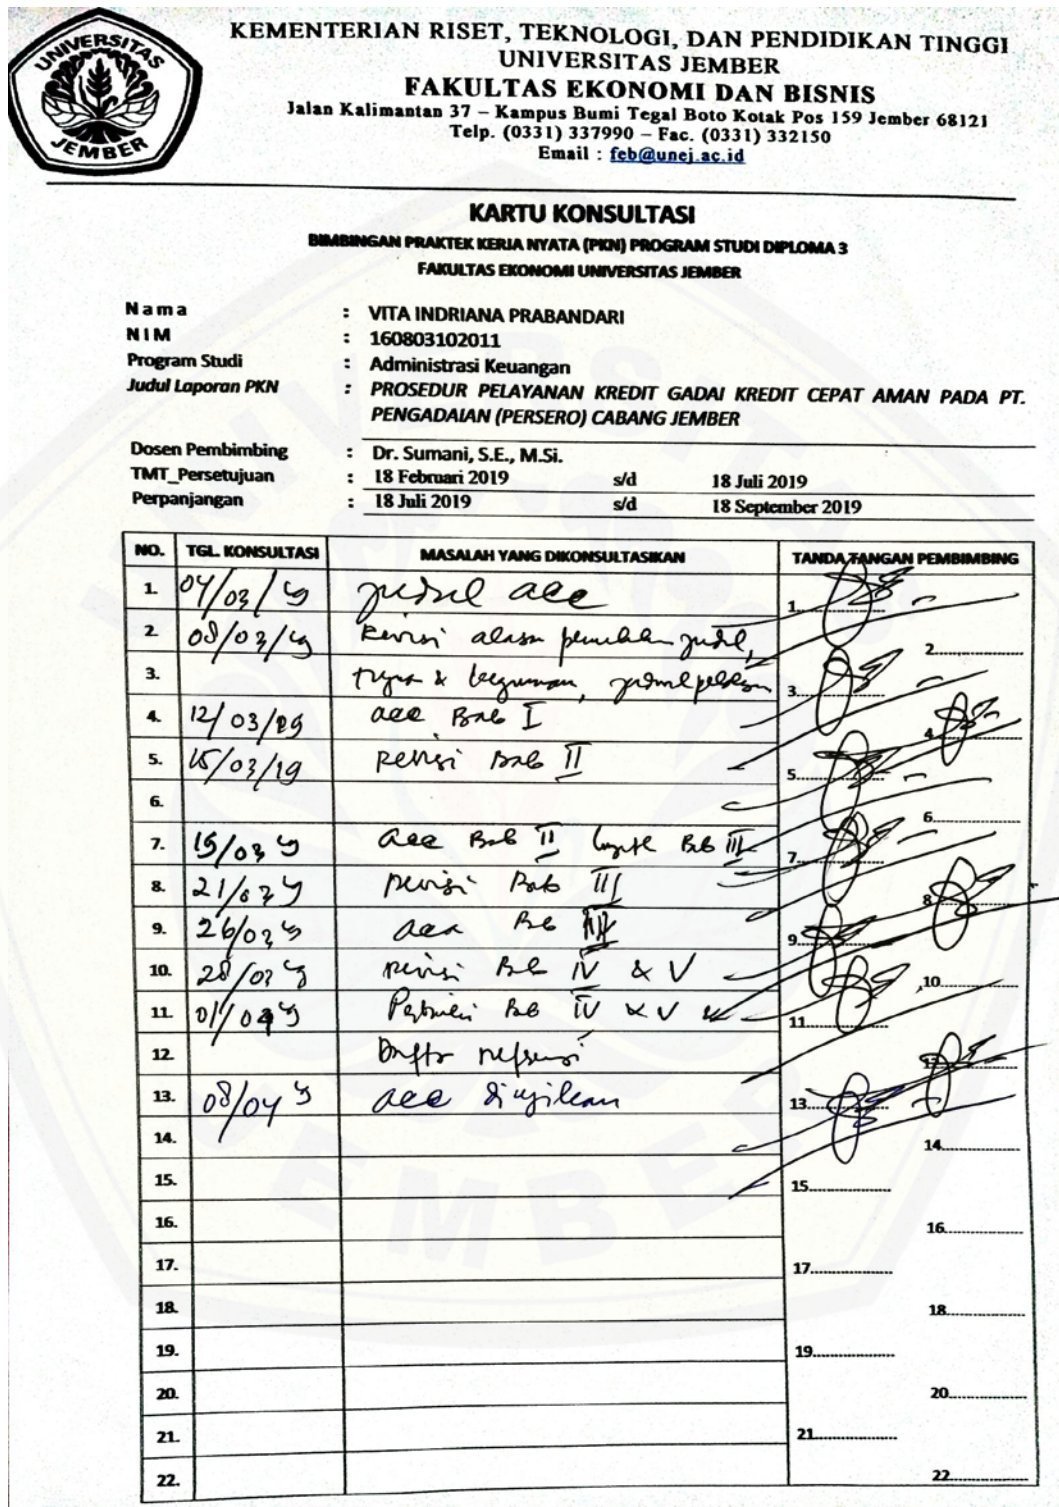 UNIVERSITAS
JEMBER
KEMENTERIAN RISET, TEKNOLOGI, DAN PENDIDIKAN TINGGI
UNIVERSITAS JEMBER
FAKULTAS EKONOMI DAN BISNIS
Jalan Kalimantan 37 – Kampus Bumi Tegal Boto Kotak Pos 159 Jember 68121
Telp. (0331) 337990 – Fac. (0331) 332150
Email : feb@unej.ac.id
KARTU KONSULTASI
BIMBINGAN PRAKTEK KERJA NYATA (PKN) PROGRAM STUDI DIPLOMA 3
FAKULTAS EKONOMI UNIVERSITAS JEMBER
Nama : VITA INDRIANA PRABANDARI
NIM : 160803102011
Program Studi : Administrasi Keuangan
Judul Laporan PKN : PROSEDUR PELAYANAN KREDIT GADAI KREDIT CEPAT AMAN PADA PT.
PENGADAIAN (PERSERO) CABANG JEMBER
Dosen Pembimbing : Dr. Sumani, S.E., M.Si.
TMT_Persetujuan : 18 Februari 2019 s/d 18 Juli 2019
Perpanjangan : 18 Juli 2019 s/d 18 September 2019
NO. TGL. KONSULTASI MASALAH YANG DIKONSULTASIKAN TANDA TANGAN PEMBIMBING
1. 04/03/19 judul acc 1
2. 08/03/19 Revisi alasan pemilihan judul, 2
3. & kegunaan, 3
4. 12/03/19 acc Bab I 4
5. 15/03/19 Revisi Bab II 5
6. 6
7. 19/03 19 acc Bab II Bab III 7
8. 21/03 19 Revisi Bab III 8
9. 26/03 19 acc Bab III 9
10. 28/03 19 Revisi Bab IV & V 10
11. 01/04 19 Bab IV & V 11
12. Daftar referensi 12
13. 08/04 19 acc diujikan 13
14. 14
15. 15
16. 16
17. 17
18. 18
19. 19
20. 20
21. 21
22. 22